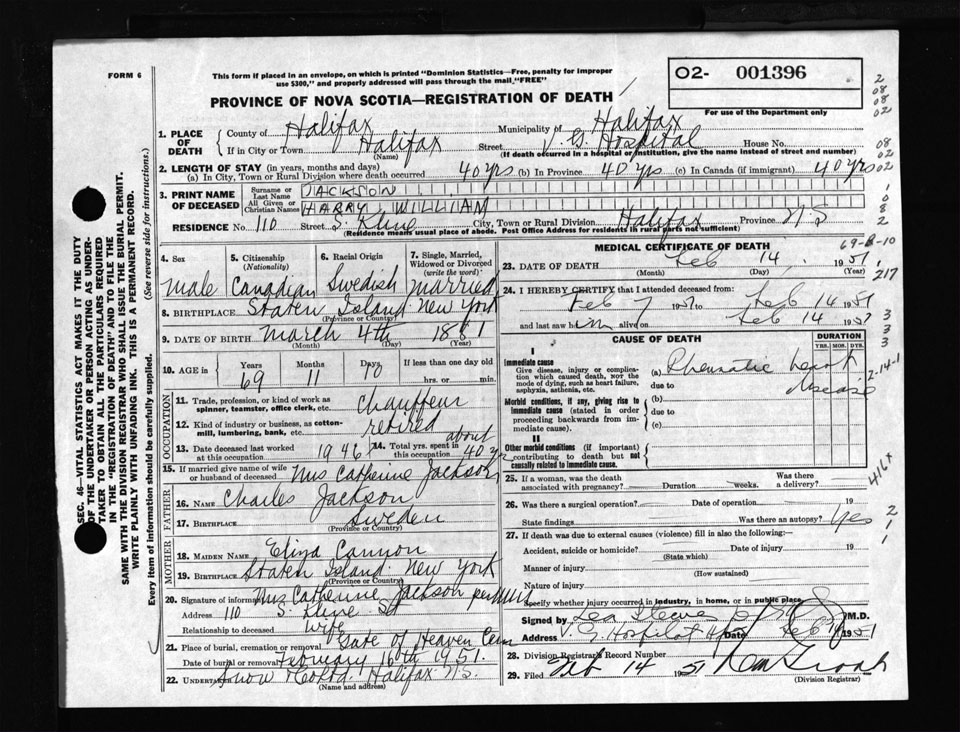 FORM 6
This form if placed in an envelope, on which is printed "Dominion Statistics—Free, penalty for improper
use $300," and properly addressed will pass through the mail, "FREE"
O2- 001396
For use of Department only
PROVINCE OF NOVA SCOTIA—REGISTRATION OF DEATH
1. PLACE OF DEATH County of Halifax Municipality of Halifax
If in City or Town Halifax Street V. G. Hospital House No.
(Name) (If death occurred in a hospital or institution, give the name instead of street and number)
2. LENGTH OF STAY (in years, months and days)
(a) In City, Town or Rural Division where death occurred 40 yrs (b) In Province 40 yrs (c) In Canada (if immigrant) 40 yrs
3. PRINT NAME OF DECEASED Surname or Last Name JACKSON
All Given or Christian Names HARRY WILLIAM
RESIDENCE No. 110 Street S. Kline City, Town or Rural Division Halifax Province N.S
(Residence means usual place of abode. Post Office Address for residents in rural parts not sufficient)
4. Sex 5. Citizenship (Nationality) 6. Racial Origin 7. Single, Married, Widowed or Divorced (write the word)
Male Canadian Swedish Married
8. BIRTHPLACE Staten Island New York
(Province or Country)
9. DATE OF BIRTH March 4th 1881
(Month) (Day) (Year)
10. AGE in Years Months Days If less than one day old
69 11 10 hrs. or min.
OCCUPATION
11. Trade, profession or kind of work as spinner, teamster, office clerk, etc. Chauffeur
12. Kind of industry or business, as cotton-mill, lumbering, bank, etc. retired
13. Date deceased last worked at this occupation 1946 14. Total yrs. spent in this occupation about 40 yr
15. If married give name of wife or husband of deceased Mrs Catherine Jackson
FATHER
16. NAME Charles Jackson
17. BIRTHPLACE Sweden
(Province or Country)
MOTHER
18. MAIDEN NAME Eliza Cannon
19. BIRTHPLACE Staten Island New York
(Province or Country)
20. Signature of informant Mrs Catherine Jackson per
Address 110 S. Kline St
Relationship to deceased wife
21. Place of burial, cremation or removal Gate of Heaven Cem
Date of burial or removal February 16th 1951.
22. UNDERTAKER Snow & Co Ltd. Halifax N.S.
(Name and address)
MEDICAL CERTIFICATE OF DEATH
69-8-10
23. DATE OF DEATH Feb 14, 1951
(Month) (Day) (Year)
24. I HEREBY CERTIFY that I attended deceased from:
Feb 7 1951 to Feb 14 1951
and last saw him alive on Feb 14 1951
CAUSE OF DEATH DURATION
YRS. MOS. DYS.
I
Immediate cause
Give disease, injury or complication which caused death, NOT the mode of dying, such as heart failure, asphyxia, asthenia, etc.
(a) Rheumatic heart disease
due to
Morbid conditions, if any, giving rise to immediate cause (stated in order proceeding backwards from immediate cause).
(b)
due to
(c)
II
Other morbid conditions (if important) contributing to death but not causally related to immediate cause.
25. If a woman, was the death associated with pregnancy? Duration weeks. Was there a delivery?
26. Was there a surgical operation? Date of operation 19
State findings Was there an autopsy? Yes
27. If death was due to external causes (violence) fill in also the following:
Accident, suicide or homicide? Date of injury 19
(State which)
Manner of injury
(How sustained)
Nature of injury
Specify whether injury occurred in industry, in home, or in public place
Signed by M.D.
Address V. G. Hospital Date Feb 14 1951
28. Division Registrar's Record Number
29. Filed Feb 14 1951
(Division Registrar)
2
08
08
02
08
02
02
1
0
8
2
1
217
3
3
3
2-14-1
416x
2
1
1
SEC. 46—VITAL STATISTICS ACT MAKES IT THE DUTY
OF THE UNDERTAKER OR PERSON ACTING AS UNDER-
TAKER TO OBTAIN ALL THE PARTICULARS REQUIRED
IN THE "REGISTRATION OF DEATH" AND TO FILE THE
SAME WITH THE DIVISION REGISTRAR WHO SHALL ISSUE THE BURIAL PERMIT.
WRITE PLAINLY WITH UNFADING INK. THIS IS A PERMANENT RECORD.
Every item of Information should be carefully supplied. (See reverse side for instructions.)